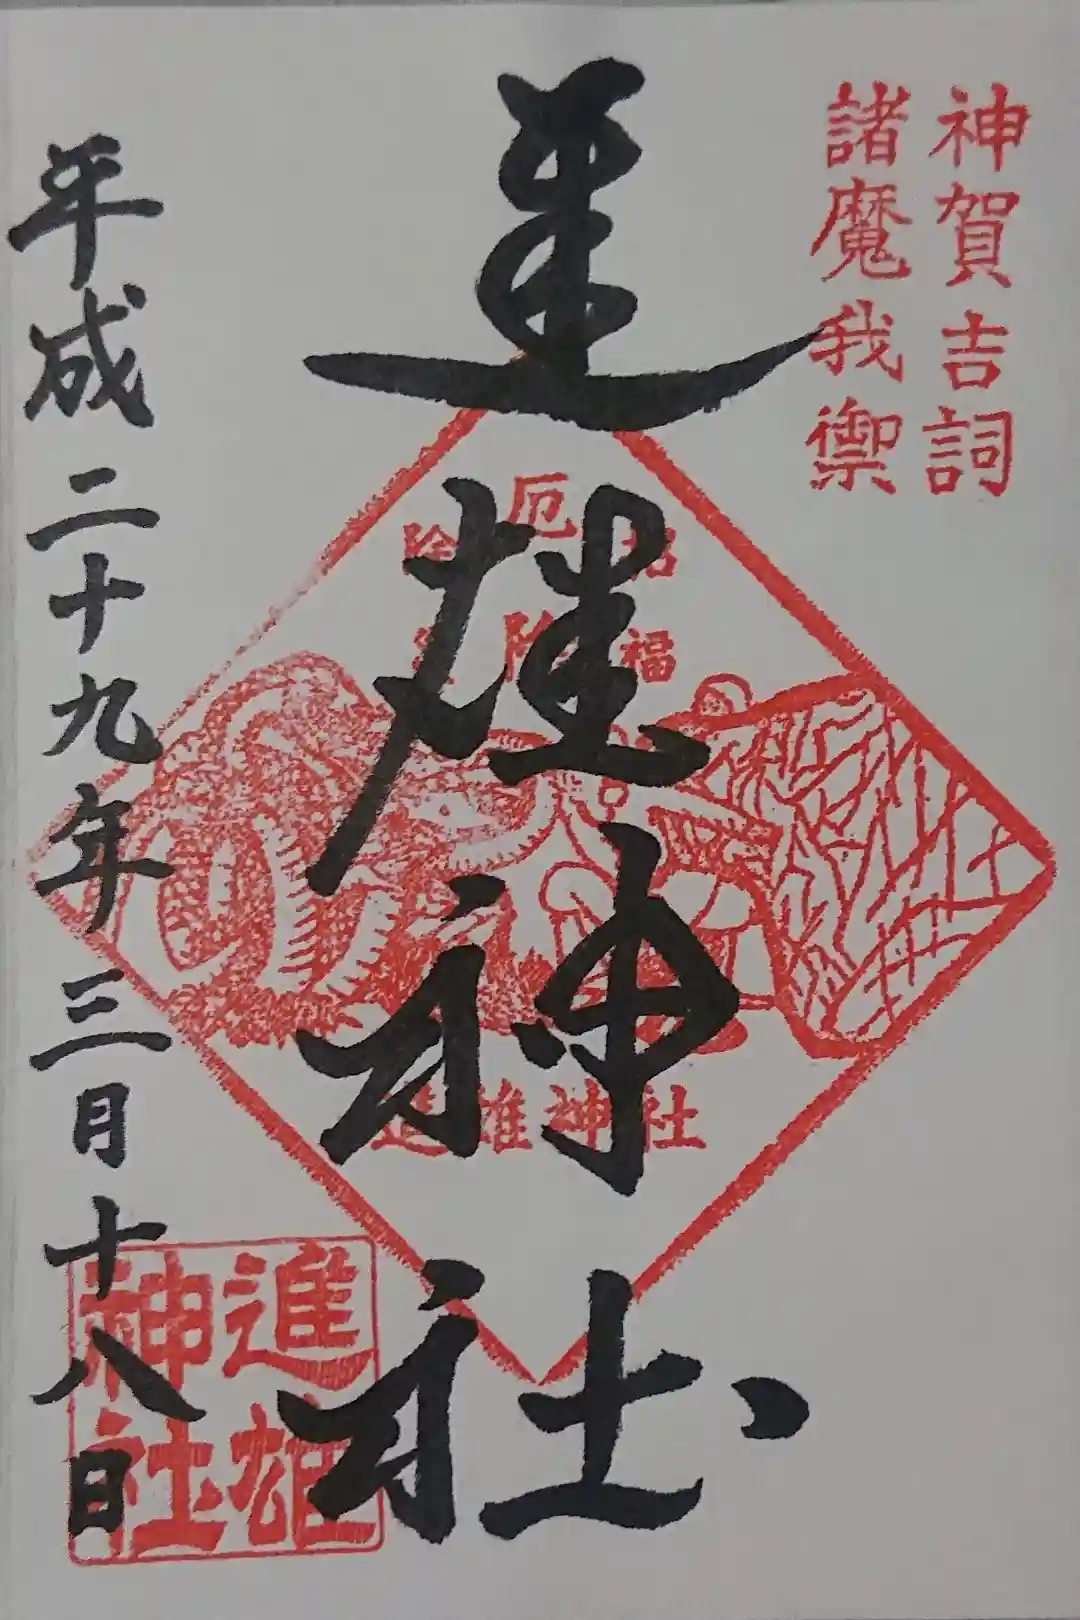 神賀吉詞
諸魔我禦
進雄神社
招福
厄除
進雄神社
平成二十九年三月十八日
進雄
神社